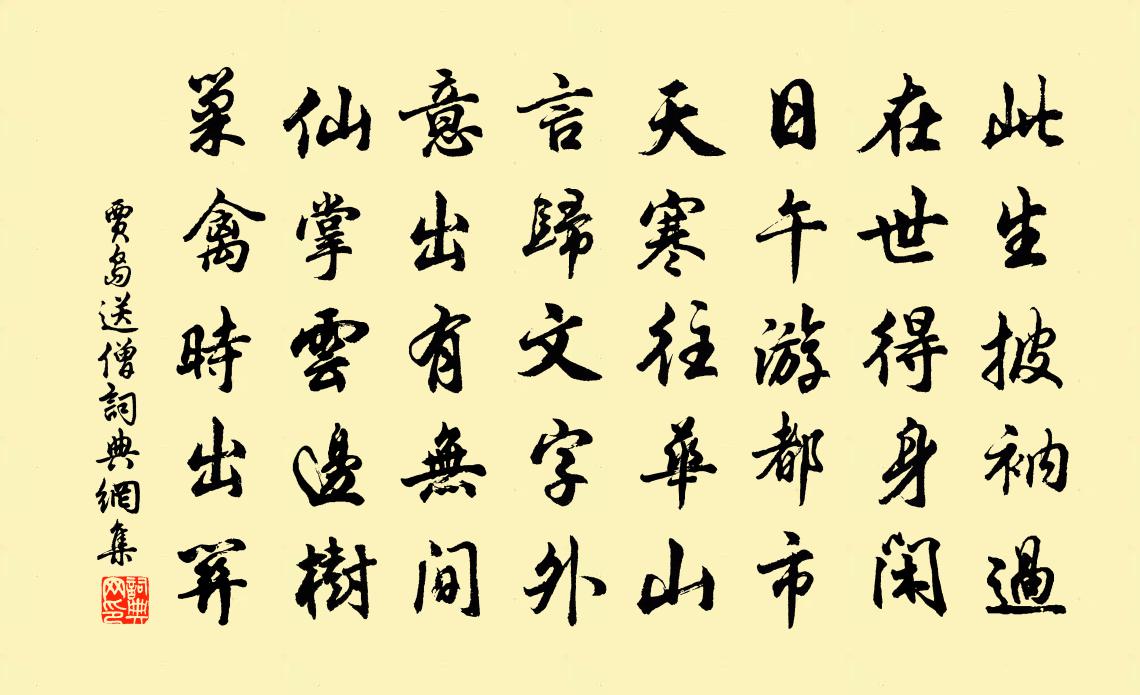 此生披衲過
在世得身閑
日午游都市
天寒往華山
言歸文字外
意出有無間
仙掌雲邊樹
巢禽時出關
賈島送僧詞典網集
詞典
网印